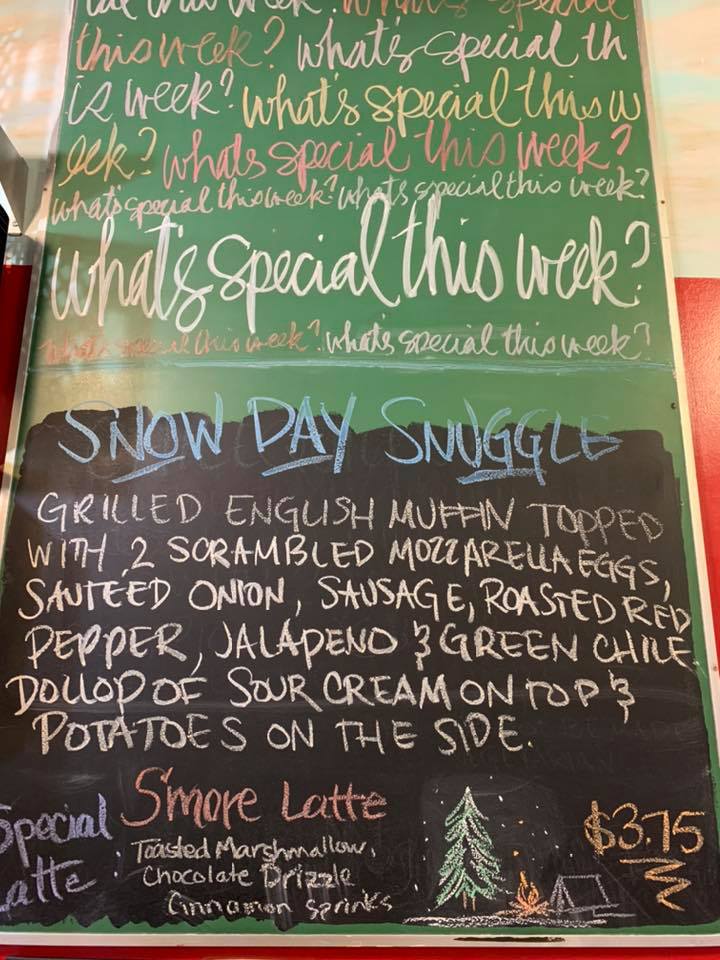 this week? what's special
this week? what's special th
is week? what's special this w
eek? what's special this week?
what's special this week? what's special this week?
what's special this week?
what's special this week? what's special this week?
SNOW DAY SNUGGLE
GRILLED ENGLISH MUFFIN TOPPED
WITH 2 SCRAMBLED MOZZARELLA EGGS,
SAUTEED ONION, SAUSAGE, ROASTED RED
PEPPER, JALAPENO & GREEN CHILE
DOLLOP OF SOUR CREAM ON TOP &
POTATOES ON THE SIDE.
Special Latte:
S'more Latte
Toasted Marshmallow,
Chocolate Drizzle
Cinnamon Sprinks
$3.75